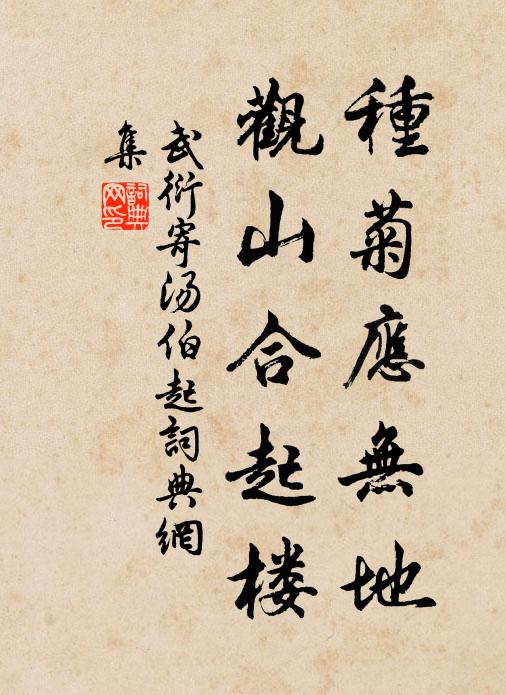 種菊應無地
觀山合起楼
武衍寄汤伯起詞典網
集
詞典
网印